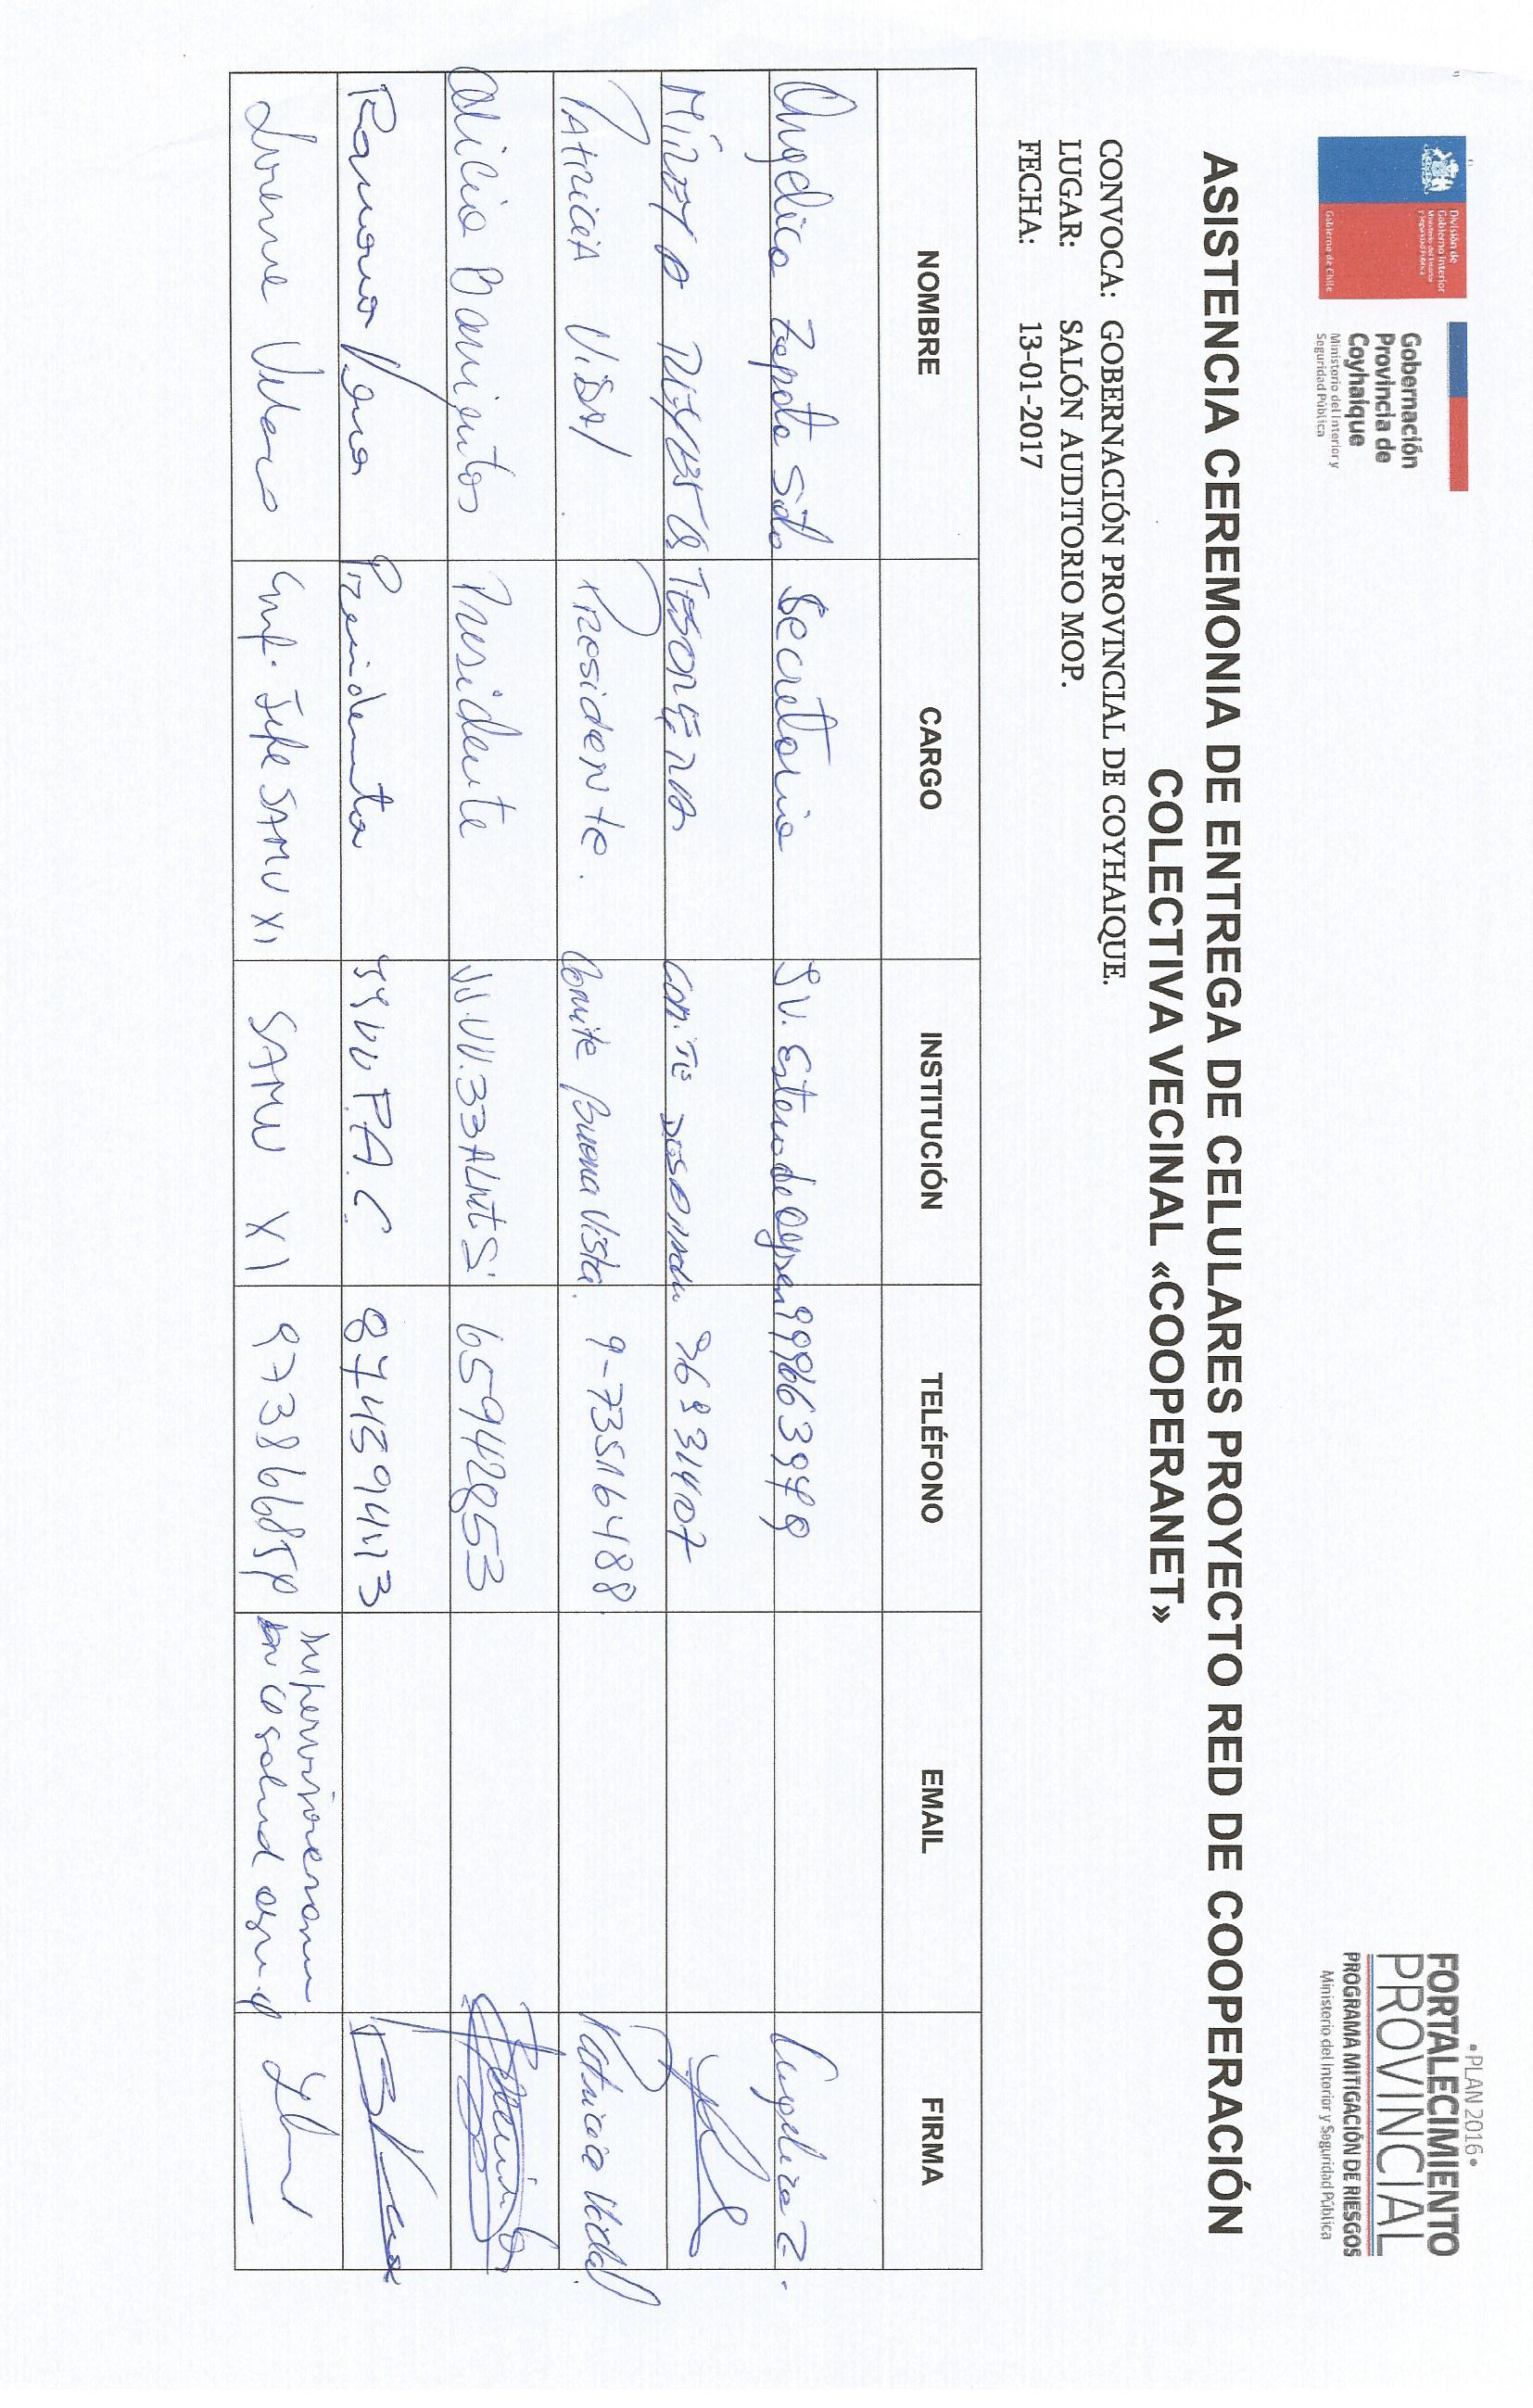 División de
Gobierno Interior
Ministerio del Interior
y Seguridad Pública
Gobierno de Chile
Gobernación
Provincia de
Coyhaique
Ministerio del Interior y
Seguridad Pública
•PLAN 2016•
FORTALECIMIENTO
PROVINCIAL
PROGRAMA MITIGACIÓN DE RIESGOS
Ministerio del Interior y Seguridad Pública
ASISTENCIA CEREMONIA DE ENTREGA DE CELULARES PROYECTO RED DE COOPERACIÓN
COLECTIVA VECINAL «COOPERANET»
CONVOCA: GOBERNACIÓN PROVINCIAL DE COYHAIQUE.
LUGAR: SALÓN AUDITORIO MOP.
FECHA: 13-01-2017
NOMBRE CARGO INSTITUCIÓN TELÉFONO EMAIL FIRMA
Angelica Zapata Soto Secretaria JV. Estero de Aysen 999663979 Angelica Z.
MIREYA REYES TESORERA COMITE 96931407
PATRICIA VIDAL Presidente. Comite Buena Vista. 9-73516488 Patricia Vidal.
Alicia Barrientos Presidente JJ.VV.33 65942853
Ramona Vera Presidenta JJVV P.A.C.
Lorena Enf. Jefe SAMU XI SAMU XI